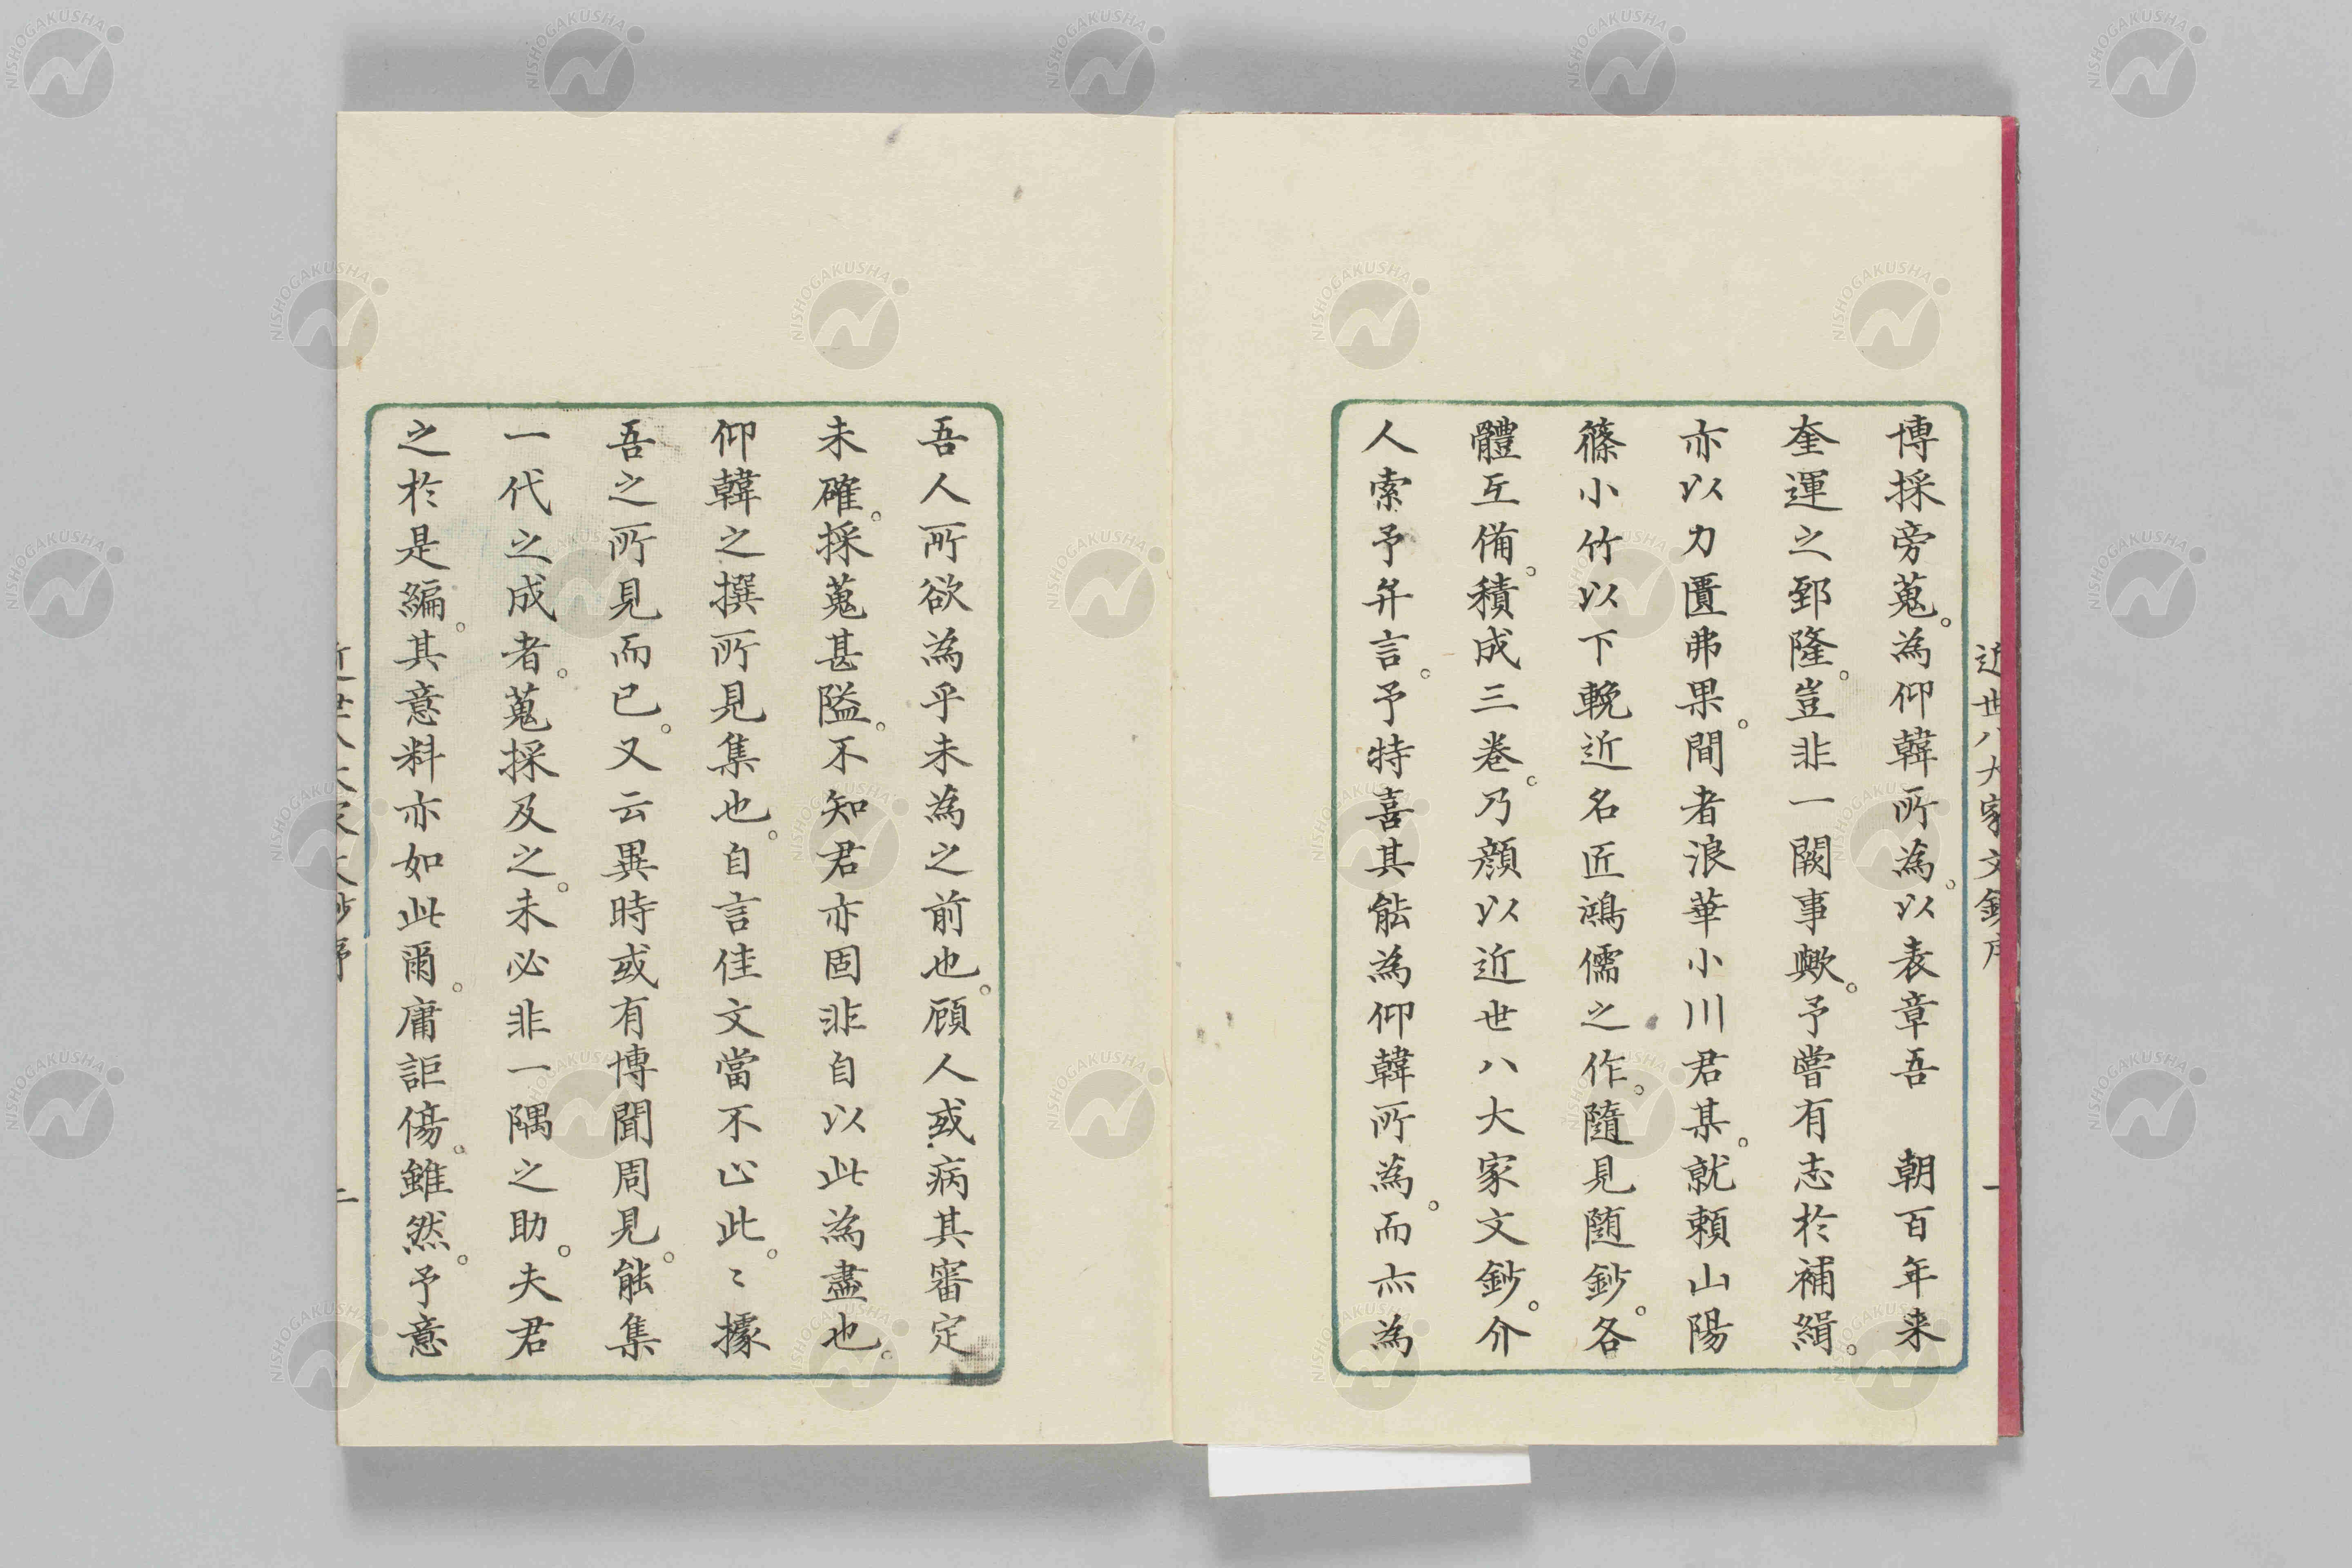 近世八大家文鈔序 一
博採旁蒐。為仰韓所為。以表章吾　朝百年来
奎運之郅隆。豈非一闕事歟。予嘗有志於補緝。
亦以力匱弗果。間者浪華小川君某。就頼山陽
篠小竹以下輓近名匠鴻儒之作。隨見随鈔。各
體互備。積成三巻。乃顔以近世八大家文鈔。介
人索予弁言。予特喜其能為仰韓所為。而亦為
吾人所欲為乎未為之前也。顧人或病其審定
未確。採蒐甚隘。不知君亦固非自以此為盡也。
仰韓之撰所見集也。自言佳文當不止此。〻據
吾之所見而已。又云異時或有博聞周見。能集
一代之成者。蒐採及之。未必非一隅之助。夫君
之於是編。其意料亦如此爾。庸詎傷。雖然。予意
二
NISHOGAKUSHA